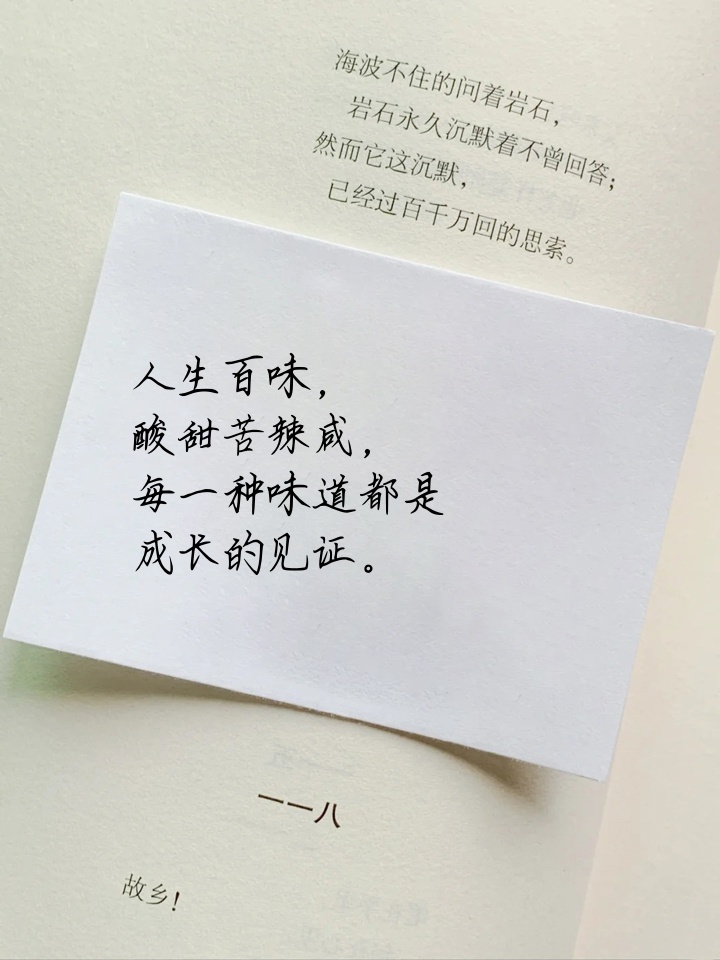 海波不住的问着岩石，
岩石永久沉默着不曾回答；
然而它这沉默，
已经过百千万回的思索。
人生百味，
酸甜苦辣咸，
每一种味道都是
成长的见证。
一一八
故乡！